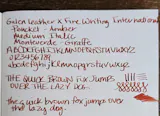 Galen Leather x Fine Writing International
Planket - Amber
Medium Italic
Monteverde - Giraffe
ABCDEFGHIJKLMNOPQRSTUVWXYZ
0123456789
abcdefghijklmnopqrstuvwxyz
THE QUICK BROWN FOX JUMPS
OVER THE LAZY DOG.
the quick brown fox jumps over
the lazy dog.